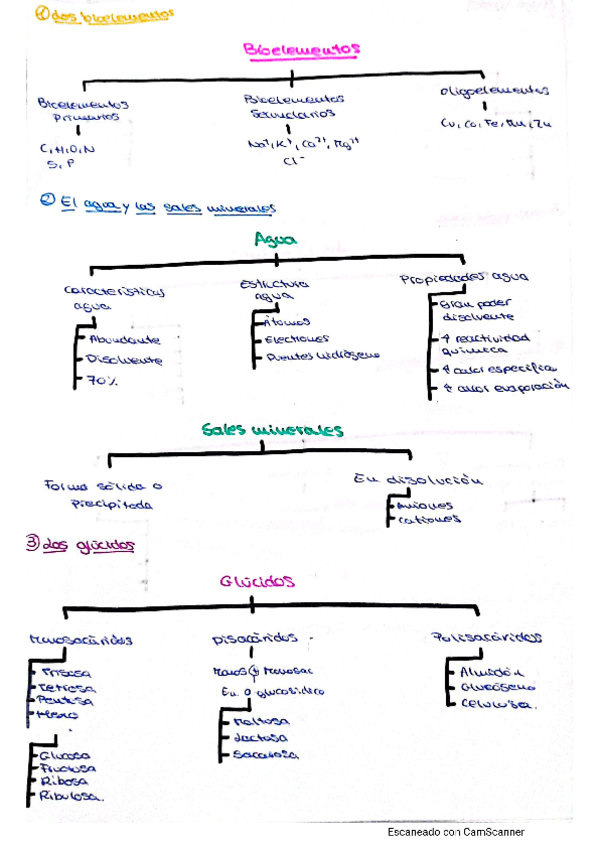 ① Los bioelementos
Bioelementos
Bioelementos
Primarios
C, H, O, N
S, P
Bioelementos
Secundarios
Na⁺, K⁺, Ca²⁺, Mg²⁺
Cl⁻
oligoelementos
Cu, Co, Fe, Mn, Zn
② El agua y las sales minerales
Agua
Características
agua
Abundante
Disolvente
70%
Estructura
agua
Átomos
Electrones
Puentes hidrógeno
Propiedades agua
Gran poder
disolvente
↑ reactividad
química
↑ calor específico
↑ calor evaporación
Sales minerales
Forma sólida o
precipitada
En disolución
Aniones
Cationes
③ Los glúcidos
Glúcidos
Monosacáridos
Triosa
Tetrosa
Pentosa
Hexo
Glucosa
Fructosa
Ribosa
Ribulosa.
Disacáridos
Monos + Monosac
En. O glucosídico
Maltosa
Lactosa
Sacarosa
Polisacáridos
Almidón
Glucógeno
Celulosa.
Escaneado con CamScanner